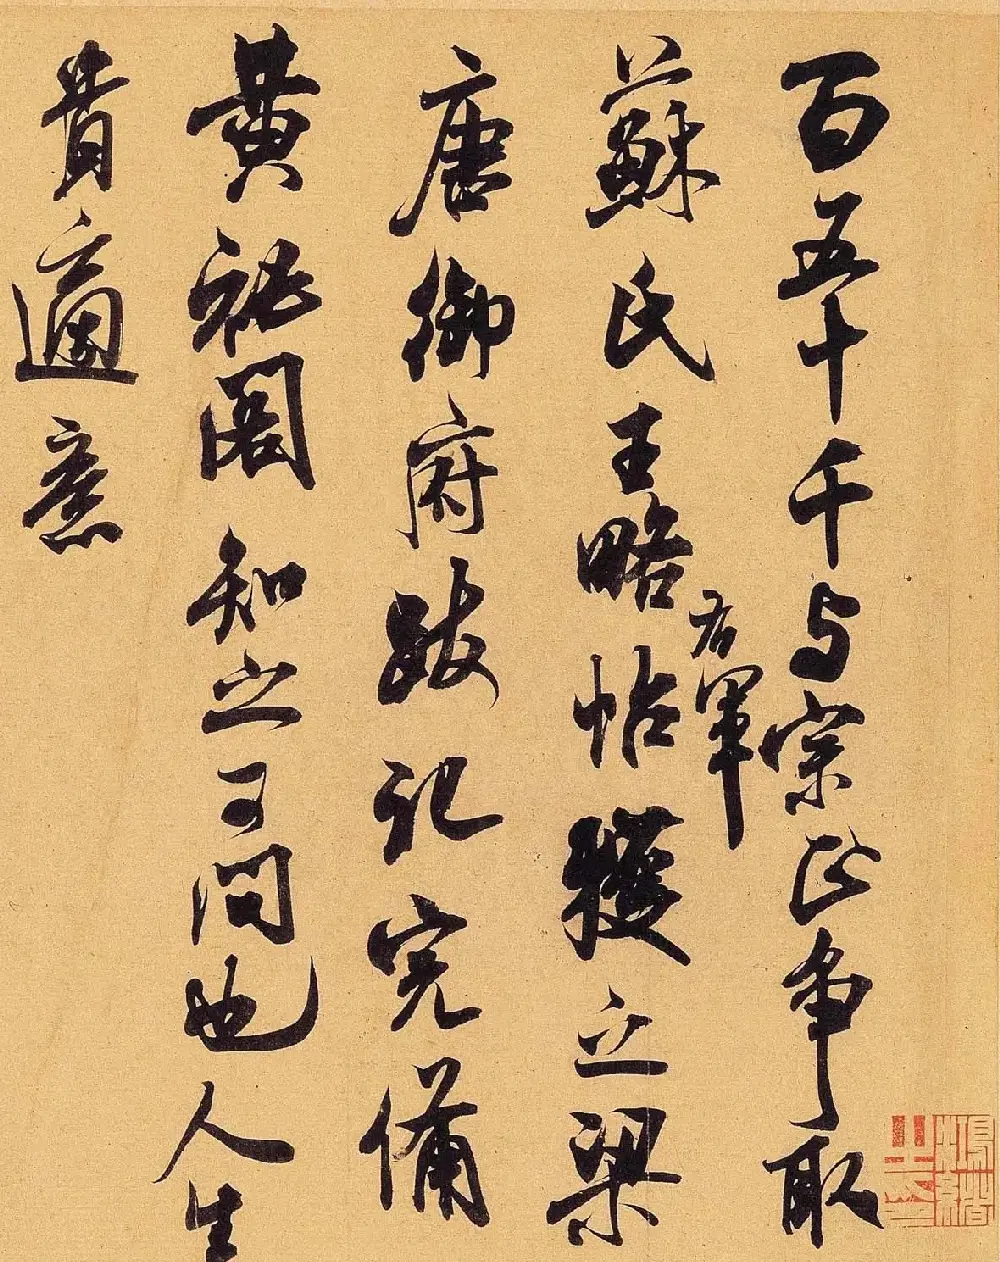 百五十千与宗正争取
蘇氏王略帖右軍獲之梁
唐御府跋記完備
黄祕閣知之可問也人生
貴適意